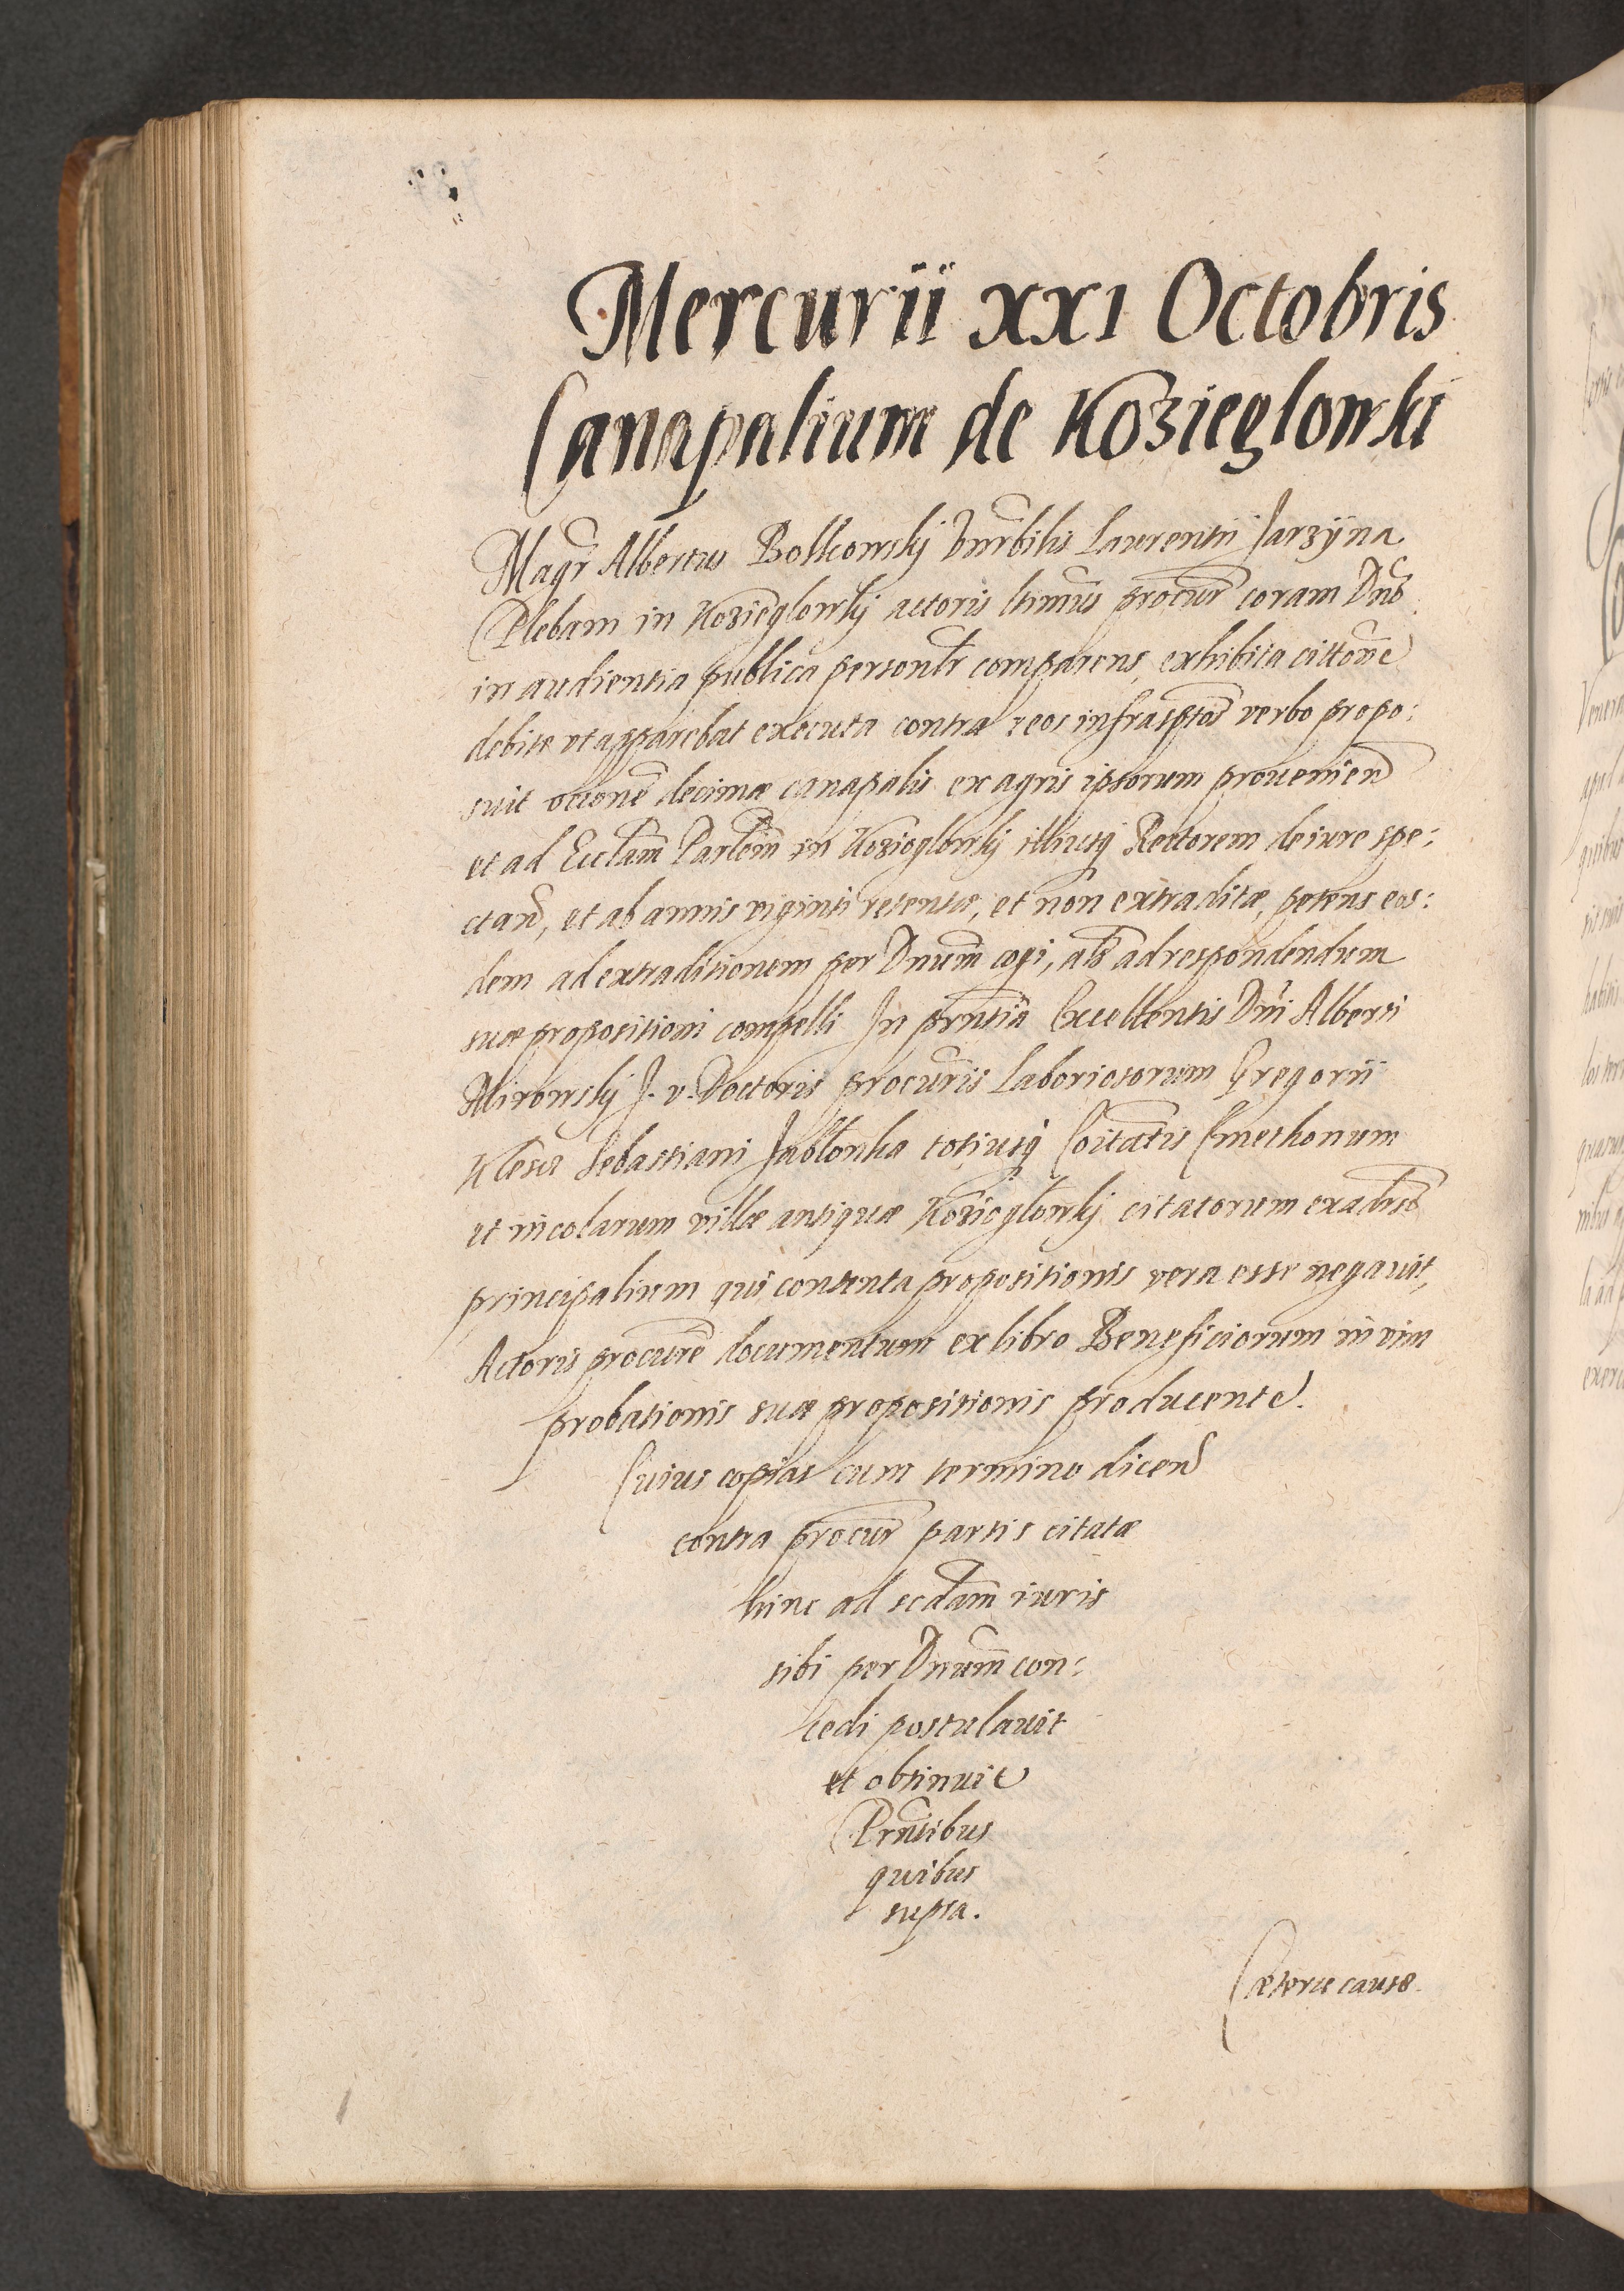 Mercurii XXI Octobris
Canapalium de Kozieglowki
Magr Albertus Bolkowskj Vnrbilis Laurentij Jarzÿna
Plebani in Kozieglowkj actoris ltimus procur coram Dno
in audientia publica personlr comparens, exhibita cittone
debite vt apparebat executa contra reos infrasptos verbo propo:
suit occione decimæ canapalis ex agris ipsorum prouenien
et ad Eccliam Parlem in Kozieglowkj illiusq Rectorem de iure spe:
ctan, et ab annis viginti retentæ, et non extraditæ, petens eos:
dem ad extraditionem per Dnum cogi, als ad respondendum
suæ propositioni compelli In prntia Excellentis Dni Alberti
Mirowskj J. v. Doctoris procuris Laboriosorum Gregorii
Klesz Sebastiani Jablonka totiusq Coitatis Cmethonum
et incolarum villæ antiquæ Kozieglowkj citatorum ex adverso
principalium qui contenta propositionis vera esse negauit,
Actoris procure documentum ex libro Beneficiorum in vim
probationis suæ propositionis producente.
Cuius copias cum termino dicen
contra procur partis citatæ
hinc ad scdam iuris
sibi per Dnum con:
cedi postulauit
et obtinuit
Prntibus
quibus
supra.
Cæteræ causæ.